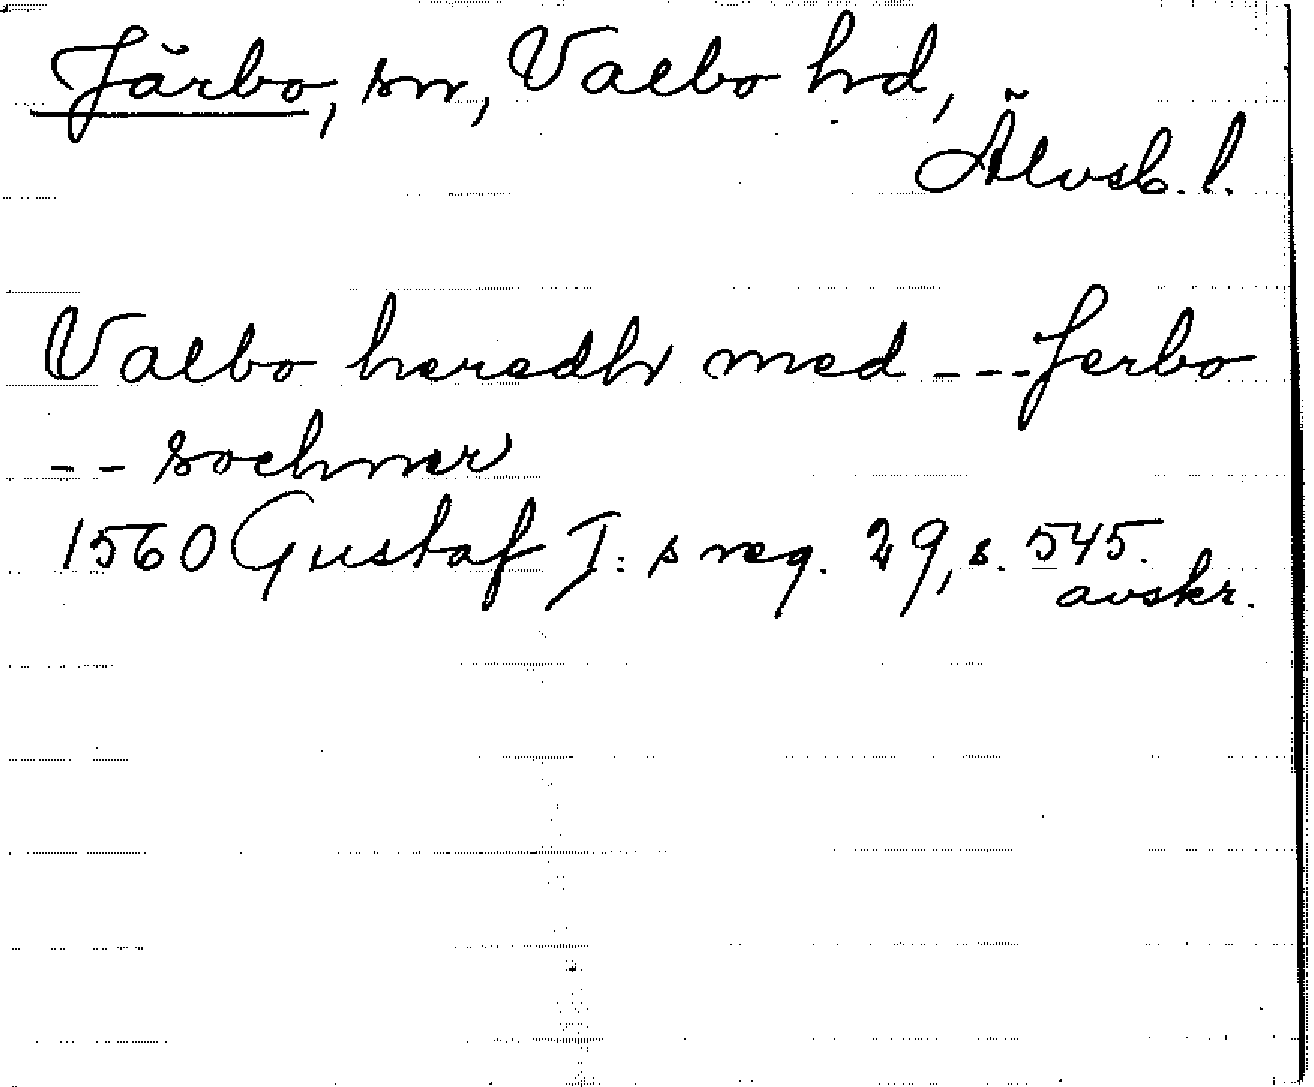 Järbo, sn, Valbo hd,
Älvsb. l.
Valbo heredh med --- Jerbo
-- sochner
1560 Gustaf I: s reg. 29, s. 545.
avskr.